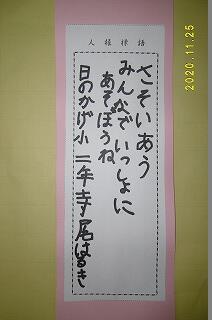 人権標語
さそいあう
みんなでいっしょに
あそぼうね
日のかげ小 二年 寺尾はるき
2020.11.25